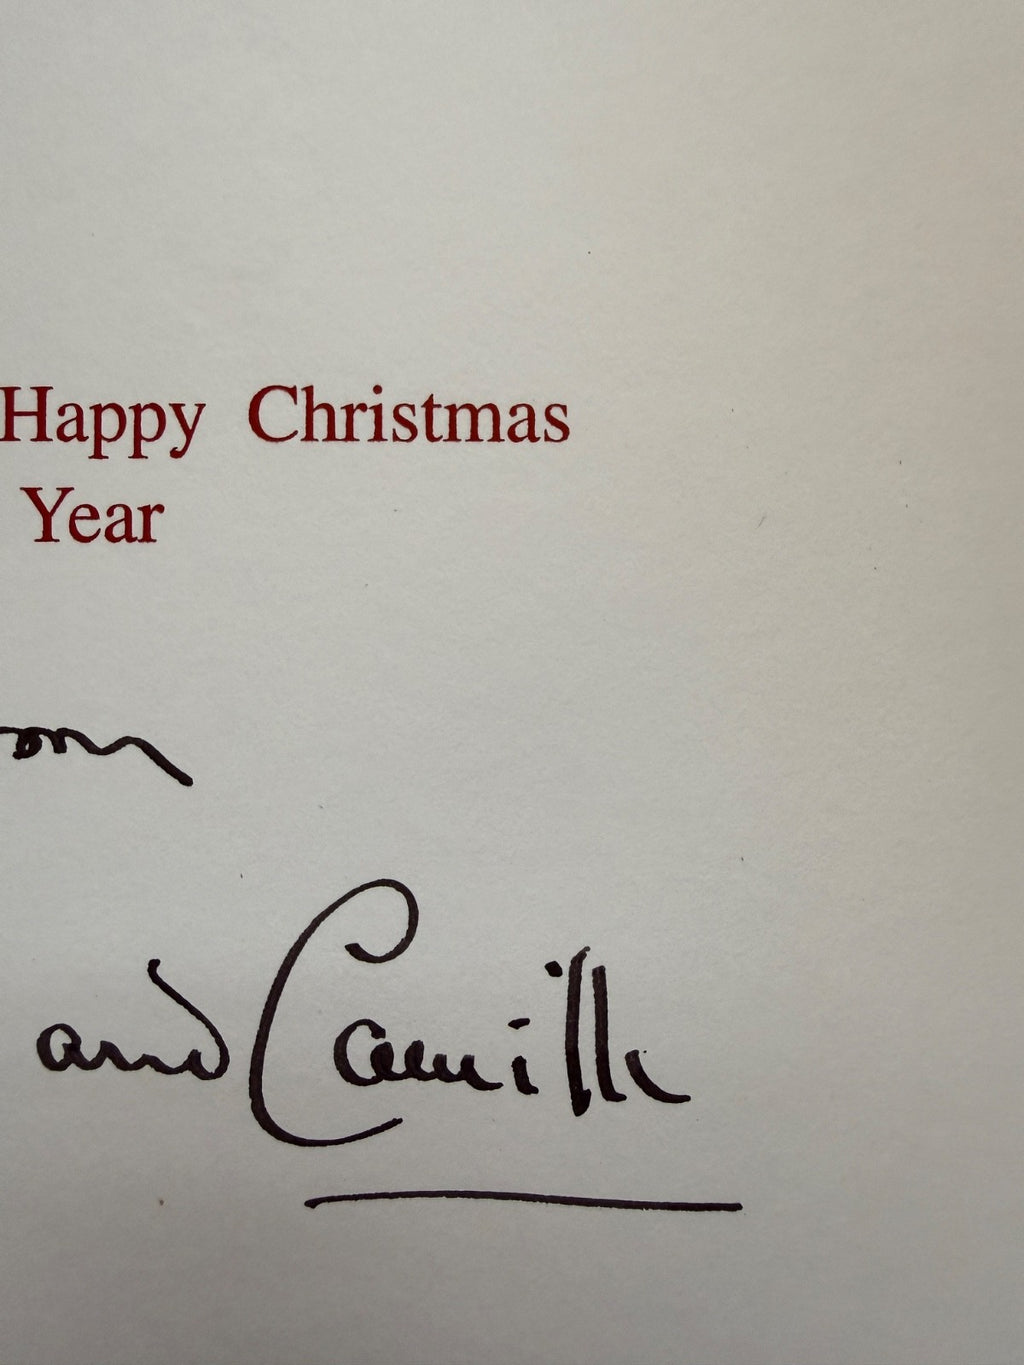 Happy Christmas
Year
and Camilla